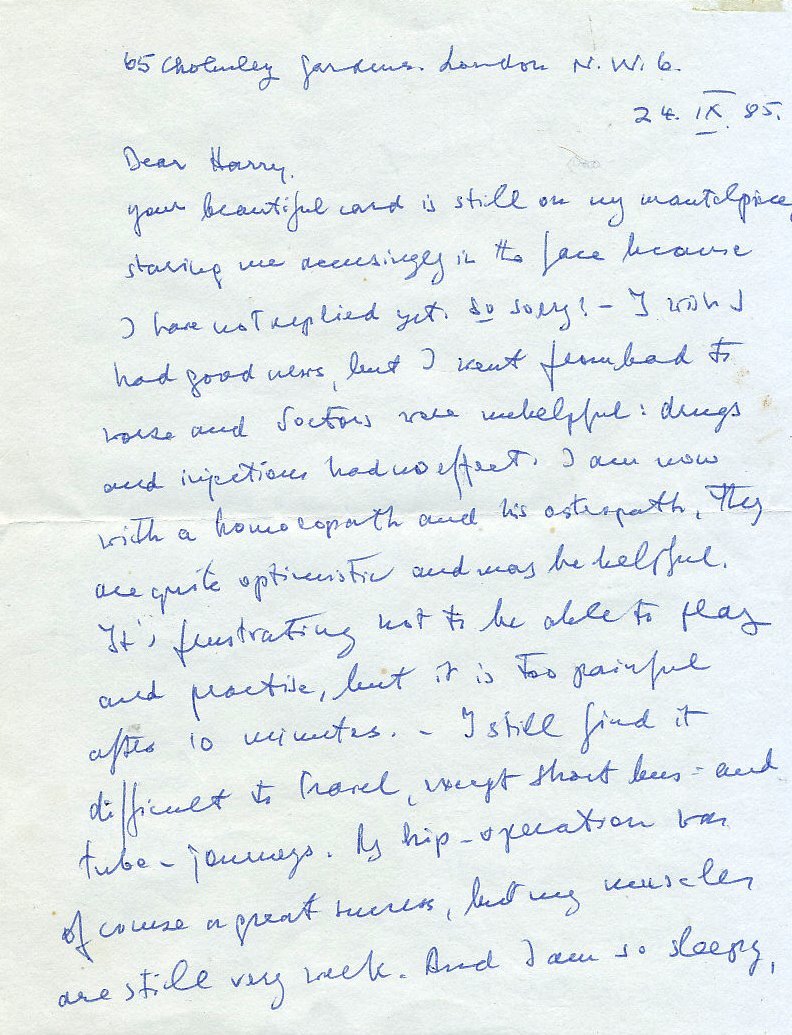 65 Cholmley Gardens. London N.W.6.
24. IX. 85.
Dear Harry,
your beautiful card is still on my mantelpiece,
staring me accusingly in the face because
I have not replied yet. So sorry! – I wish I
had good news, but I went from bad to
worse and doctors were unhelpful: drugs
and injections had no effect. I am now
with a homoeopath and his osteopath, they
are quite optimistic and may be helpful.
It's frustrating not to be able to play
and practise, but it is too painful
after 10 minutes. – I still find it
difficult to travel, except short bus- and
tube-journeys. My hip-operation was
of course a great success, but my muscles
are still very weak. And I am so sleepy,